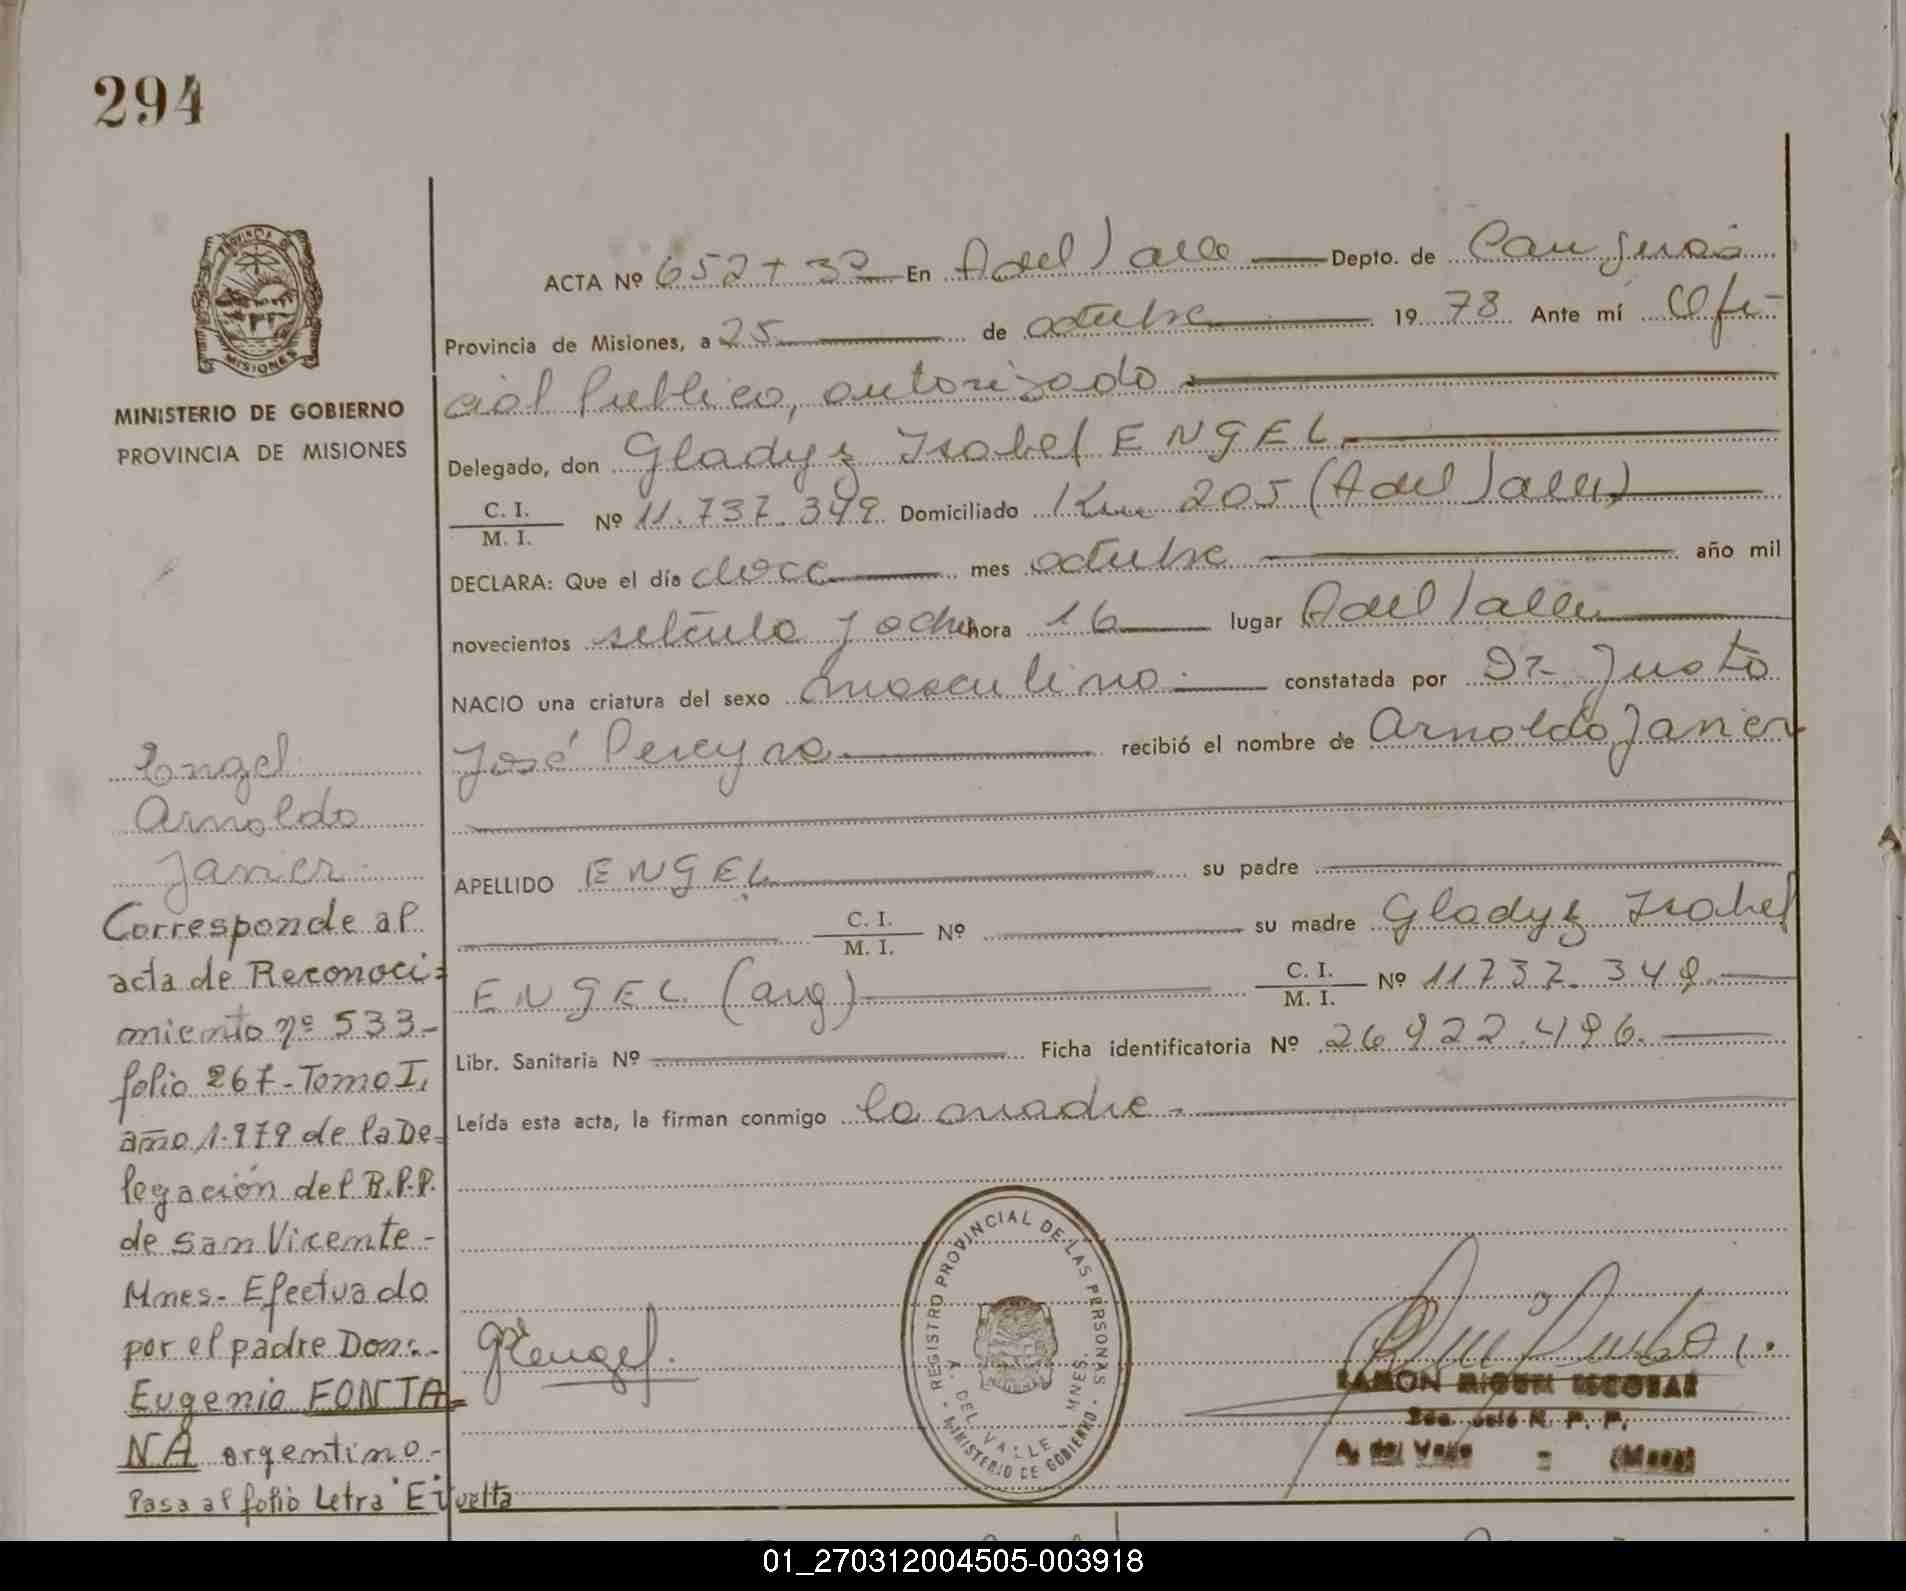 294
PROVINCIA DE
MISIONES
MINISTERIO DE GOBIERNO
PROVINCIA DE MISIONES
ACTA Nº 652 + 3º En A del Valle Depto. de Cainguás
Provincia de Misiones, a 25 de octubre 1978 Ante mí Ofi-
cial Publico, autorizado
Delegado, don Gladyz Isabel ENGEL
C. I.
M. I. Nº 11.737.349 Domiciliado Km 205 (A del Valle)
DECLARA: Que el día doce mes octubre año mil
novecientos setenta y ocho hora 16 lugar A del Valle
NACIO una criatura del sexo masculino constatada por Dr. Justo
José Pereyra recibió el nombre de Arnoldo Javier
APELLIDO ENGEL su padre
C. I.
M. I. Nº su madre Gladyz Isabel
ENGEL (arg) C. I.
M. I. Nº 11737.349
Libr. Sanitaria Nº Ficha identificatoria Nº 26922.496.
Leída esta acta, la firman conmigo la madre -
Engel
Arnoldo
Javier
Corresponde al
acta de Reconoci=
miento nº 533-
folio 267- Tomo I,
año 1.979 de la De=
legación del R.P.P.
de San Vicente -
Mnes- Efectuado
por el padre Don:-
Eugenio FONTA=
NA argentino-
Pasa al folio Letra "E" vuelta
GIEngel.
REGISTRO PROVINCIAL DE LAS PERSONAS
A. DEL VALLE - MNES.
MINISTERIO DE GOBIERNO
RAMON MIGUEL ESCOBAR
R. P. P.
A. del Valle = (Mnes)
01_270312004505-003918